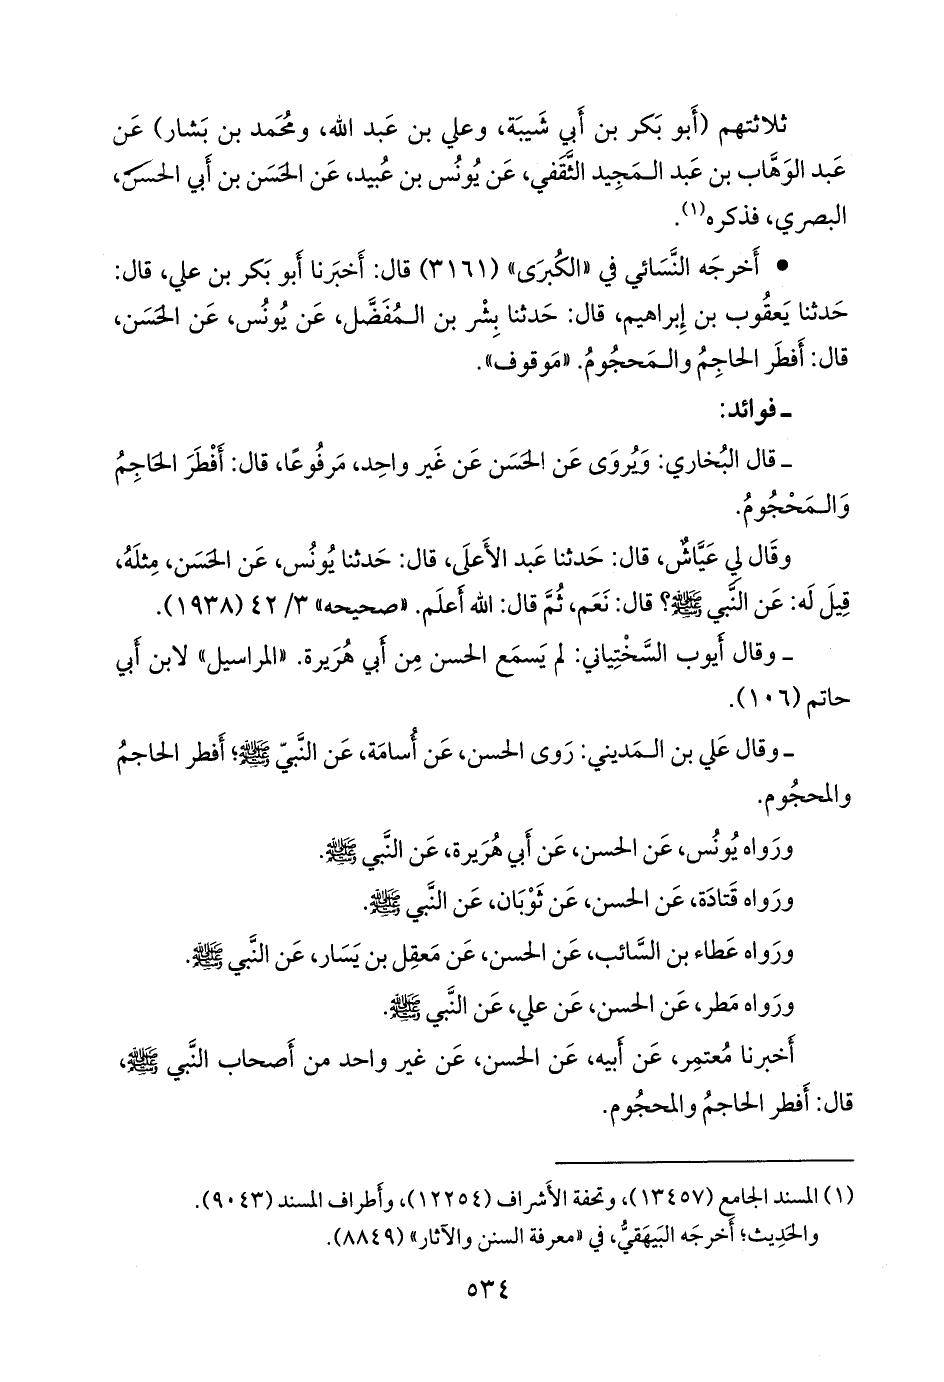 ثلاثتهم (أَبو بَكر بن أَبي شَيبَة، وعلي بن عَبد الله، ومُحَمد بن بَشار) عَن
عَبد الوَهَّاب بن عَبد الـمَجِيد الثَّقَفي، عَن يُونُس بن عُبيد، عَن الحَسَن بن أَبي الحسن،
البصري، فذكره(١).
• أَخرجَه النَّسَائي في «الكُبرَى» (٣١٦١) قال: أَخبَرنا أَبو بَكر بن علي، قال:
حَدثنا يَعقُوب بن إِبراهيم، قال: حَدثنا بِشْر بن الـمُفَضَّل، عَن يُونُس، عَن الحَسَن،
قال: أَفطَر الحاجِمُ والـمَحجُومُ. «مَوقوف».
ـ فوائد:
ـ قال البُخاري: وَيُروَى عَن الحَسَن عَن غَير واحِد، مَرفُوعًا، قال: أَفْطَرَ الحَاجِمُ
وَالـمَحْجُومُ.
وقَال لِي عَيَّاشٌ، قال: حَدثنا عَبد الأَعلَى، قال: حَدثنا يُونُس، عَن الحَسَن، مِثلَهُ،
قِيلَ لَه: عَن النَّبي ﷺ؟ قال: نَعَم، ثُمَّ قال: الله أَعلَم. «صحيحه» ٣/ ٤٢ (١٩٣٨).
ـ وقال أَيوب السَّخْتِياني: لم يَسمَع الحسن مِن أَبي هُرَيرة. «المراسيل» لابن أَبي
حاتم (١٠٦).
ـ وقال عَلي بن الـمَديني: رَوى الحسن، عَن أُسامَة، عَن النَّبيّ ﷺ؛ أَفطر الحاجمُ
والمحجُوم.
ورَواه يُونُس، عَن الحسن، عَن أَبي هُرَيرة، عَن النَّبي ﷺ.
ورَواه قَتادَة، عَن الحسن، عَن ثَوْبَان، عَن النَّبي ﷺ.
ورَواه عَطاء بن السَّائب، عَن الحسن، عَن مَعقِل بن يَسَار، عَن النَّبي ﷺ.
ورَواه مَطر، عَن الحسن، عَن علي، عَن النَّبي ﷺ.
أَخبرنا مُعتمِر، عَن أَبيه، عَن الحسن، عَن غير واحد من أَصحاب النَّبي ﷺ،
قال: أَفطر الحاجمُ والمحجُوم.
(١) المسند الجامع (١٣٤٥٧)، وتحفة الأَشراف (١٢٢٥٤)، وأَطراف المسند (٩٠٤٣).
والحَدِيث؛ أَخرجَه البَيهَقيُّ، في «معرفة السنن والآثار» (٨٨٤٩).
٥٣٤